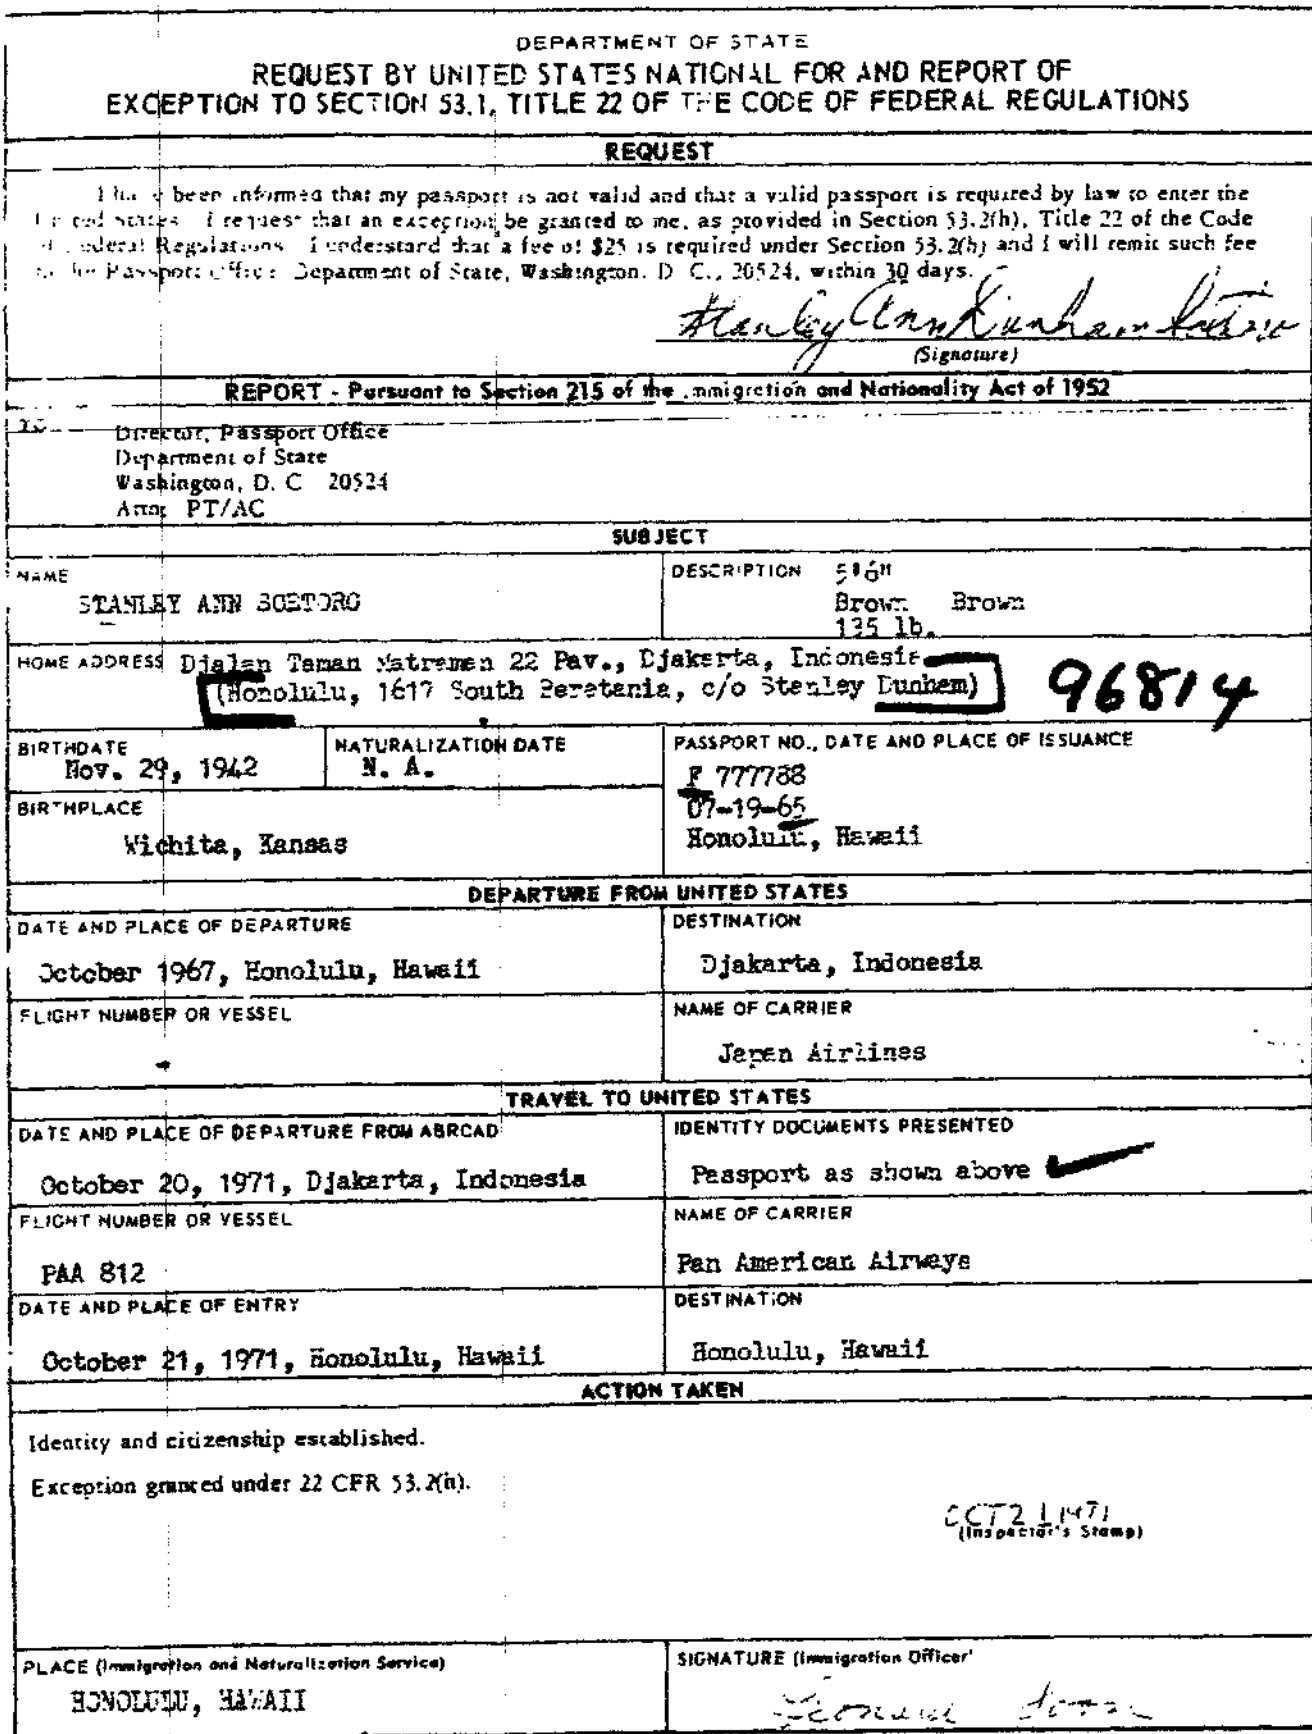 DEPARTMENT OF STATE
REQUEST BY UNITED STATES NATIONAL FOR AND REPORT OF
EXCEPTION TO SECTION 53.1, TITLE 22 OF THE CODE OF FEDERAL REGULATIONS
REQUEST
I have been informed that my passport is not valid and that a valid passport is required by law to enter the
United States. I request that an exception be granted to me, as provided in Section 53.2(h), Title 22 of the Code
of Federal Regulations. I understand that a fee of $25 is required under Section 53.2(h) and I will remit such fee
to the Passport Office, Department of State, Washington, D. C., 20524, within 30 days.
Stanley Ann Dunham Soetoro
(Signature)
REPORT - Pursuant to Section 215 of the Immigration and Nationality Act of 1952
TO
Director, Passport Office
Department of State
Washington, D. C 20524
Attn: PT/AC
SUBJECT
NAME
STANLEY ANN SOETORO
DESCRIPTION 5'6"
Brown Brown
135 lb.
HOME ADDRESS Djalan Taman Matraman 22 Pav., Djakarta, Indonesia
(Honolulu, 1617 South Beretania, c/o Stanley Dunham) 96814
BIRTHDATE
Nov. 29, 1942
NATURALIZATION DATE
N. A.
PASSPORT NO., DATE AND PLACE OF ISSUANCE
F 777788
07-19-65
Honolulu, Hawaii
BIRTHPLACE
Wichita, Kansas
DEPARTURE FROM UNITED STATES
DATE AND PLACE OF DEPARTURE
October 1967, Honolulu, Hawaii
DESTINATION
Djakarta, Indonesia
FLIGHT NUMBER OR VESSEL
NAME OF CARRIER
Japan Airlines
TRAVEL TO UNITED STATES
DATE AND PLACE OF DEPARTURE FROM ABROAD
October 20, 1971, Djakarta, Indonesia
IDENTITY DOCUMENTS PRESENTED
Passport as shown above
FLIGHT NUMBER OR VESSEL
PAA 812
NAME OF CARRIER
Pan American Airways
DATE AND PLACE OF ENTRY
October 21, 1971, Honolulu, Hawaii
DESTINATION
Honolulu, Hawaii
ACTION TAKEN
Identity and citizenship established.
Exception granted under 22 CFR 53.2(h).
OCT 21 1971
(Inspector's Stamp)
PLACE (Immigration and Naturalization Service)
HONOLULU, HAWAII
SIGNATURE (Immigration Officer)